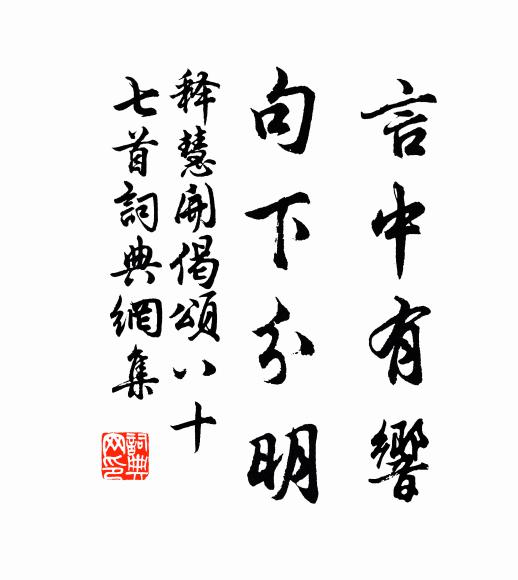 言中有響
句下分明
释慧開偈頌八十
七首詞典網集
詞典網印